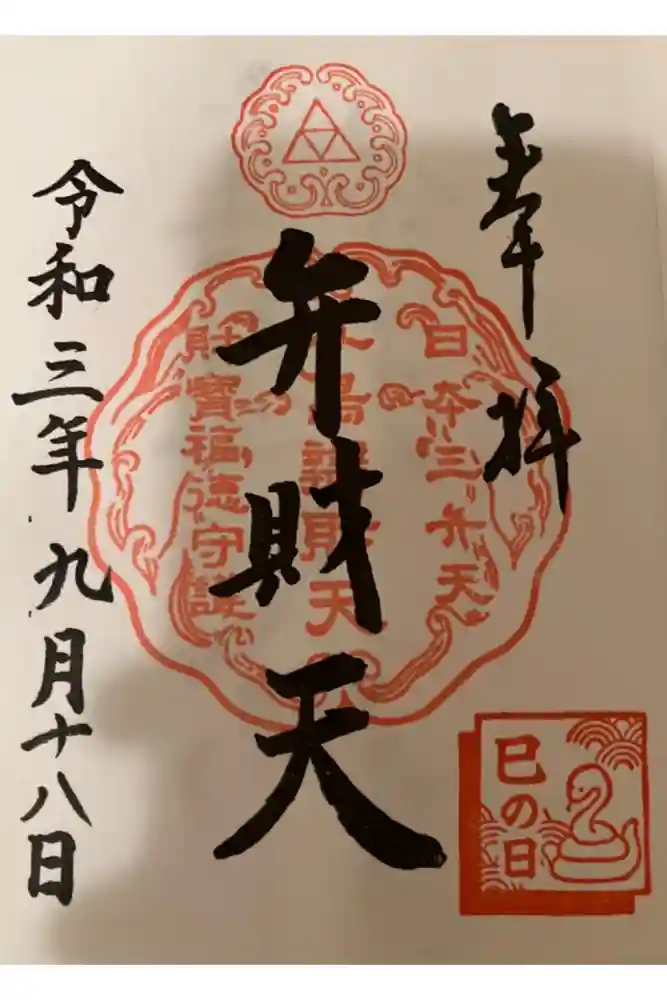 奉拝
日本三弁天
弁財天
財寶福徳守護
令和三年九月十八日
巳の日